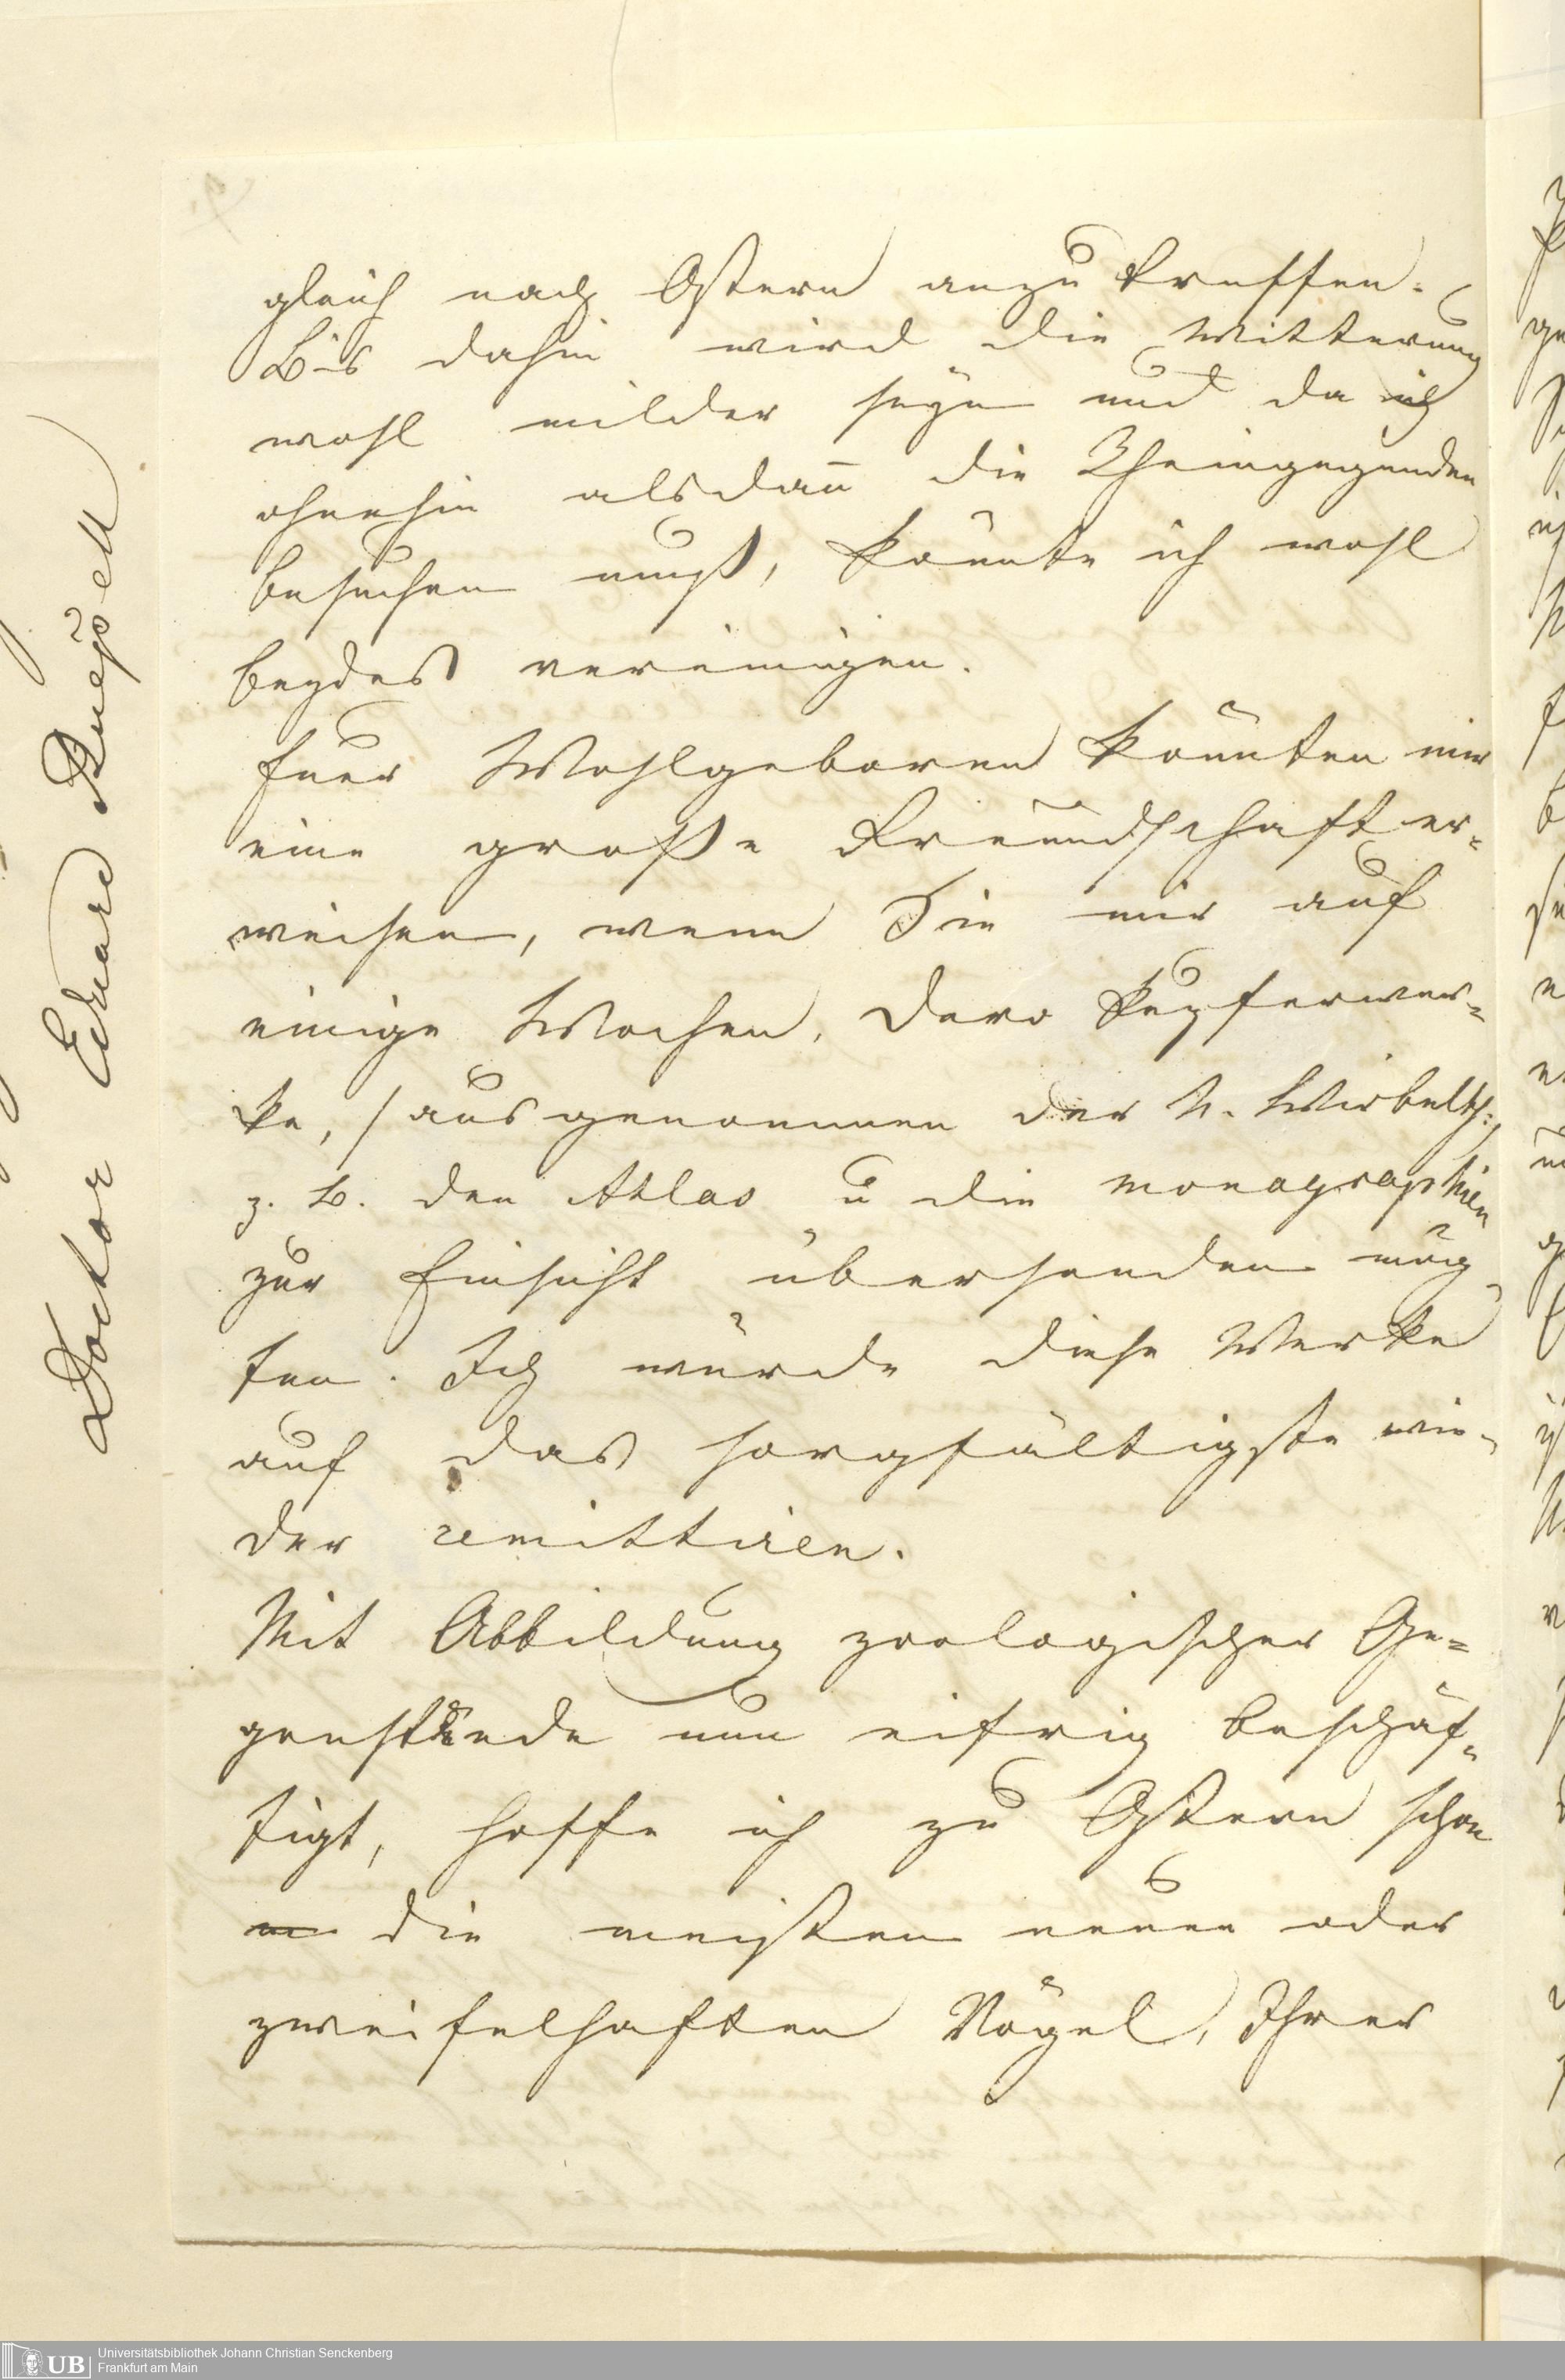 gleich nach Ostern anzutreffen.
Bis dahin wird die Witterung
wohl milder seyn und da ich
ohnehin alsdan̄ die Rheingegenden
besuchen muß, könnte ich wohl
beydes vereinigen.
Euer Wohlgeboren könnten mir
eine große Freundschaft er=
weisen, wenn Sie mir auf
einige Wochen, Dero Kupferwer=
ke, /ausgenommen der N. Wirbelth:,
z. B. den Atlas u die Monographien
zur Einsicht übersenden mög
ten. Ich würde diese Werke
auf das sorgfältigste wie=
der remittiren.
Mit Abbildung zoologischer Ge=
genstände nun eifrig beschäf=
tigt, hoffe ich zu Ostern schon
die meisten neuen oder
zweifelhaften Vögel, Ihrer
Doctor Eduard Rüppell
UB
Universitätsbibliothek Johann Christian Senckenberg
Frankfurt am Main